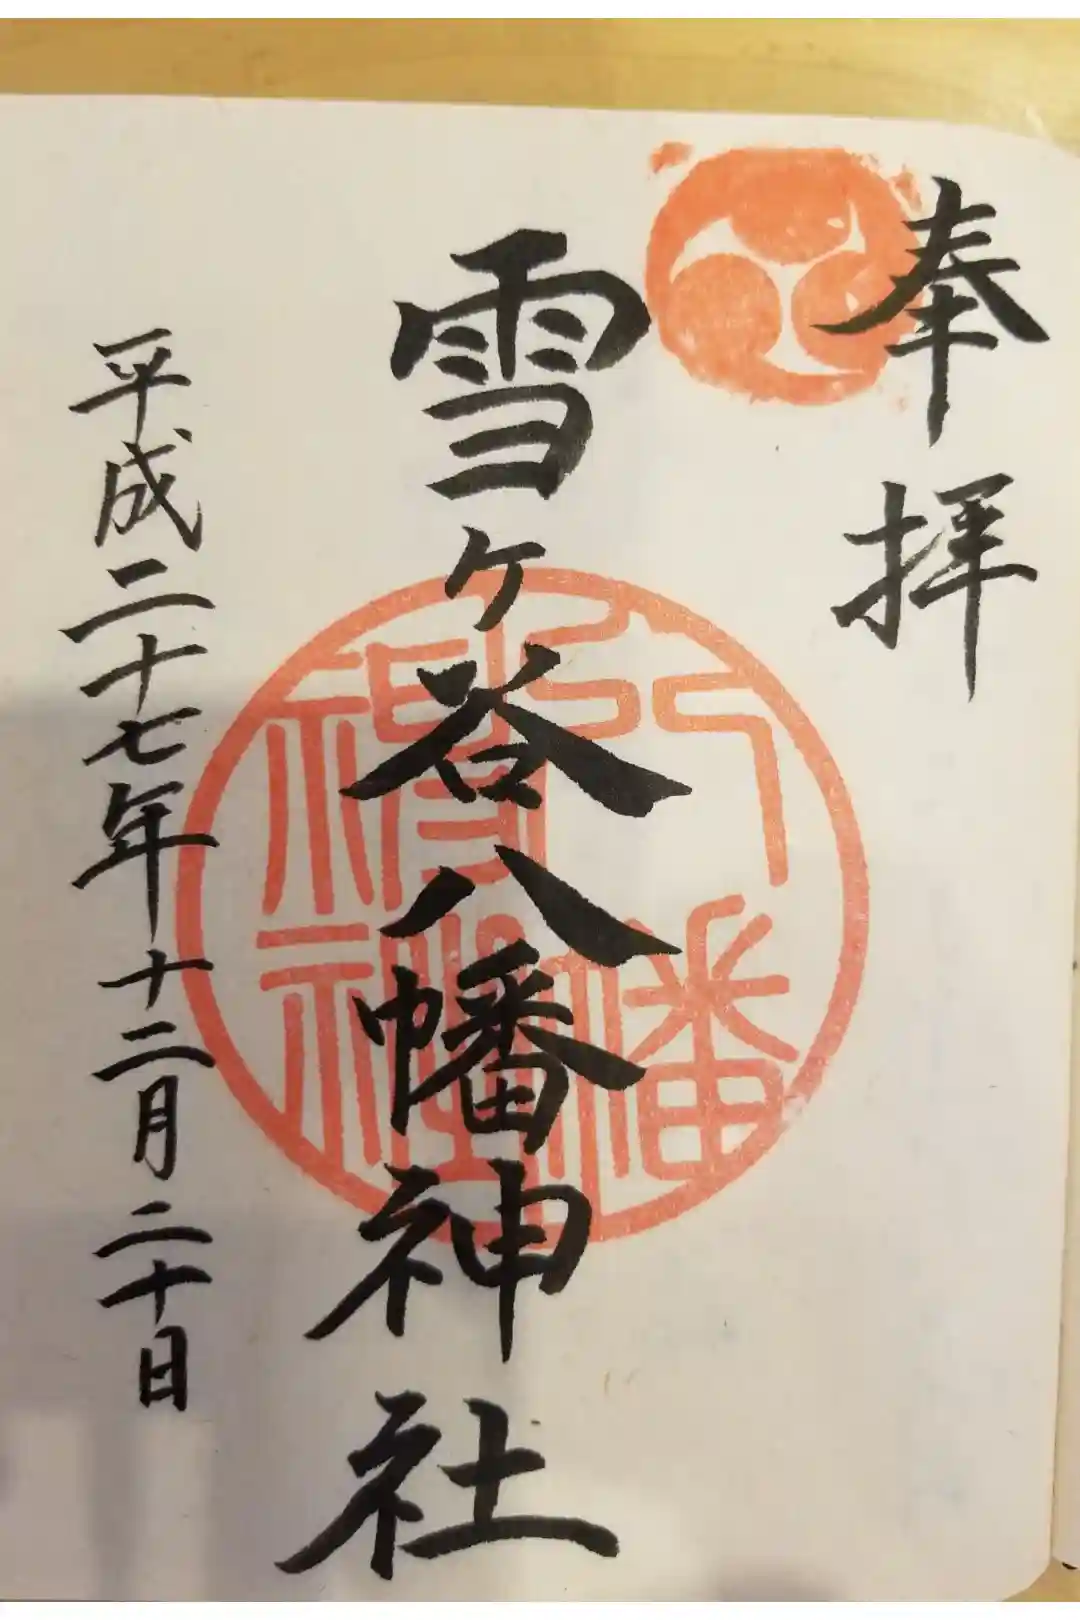 奉拝
雪ヶ谷八幡神社
平成二十七年十二月二十日
八幡
神社